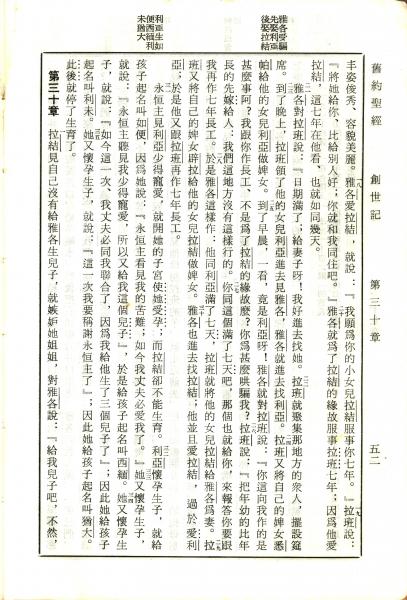 雅各受騙
先娶利亞
後娶拉結
利亞生如
便西緬利
未猶大
舊約聖經 創世記 第三十章 五二
丰姿俊秀、容貌美麗。雅各愛拉結，就說：『我願爲你的小女兒拉結服事你七年。』拉班說：
『將她給你、比給別人好；你就和我同住吧。』雅各就爲了拉結的緣故服事拉班七年；因爲他愛
拉結，這七年在他看、也就如同幾天。
雅各對拉班說：『日期滿了；給妻子呀！我好進去找她。拉班就聚集那地方的衆人，擺設筵
席。到了晚上，拉班領了他的女兒利亞進去見雅各，雅各就進去找利亞。拉班又將自己的婢女悉
帕給他的女兒利亞做婢女。到了早晨，一看，竟是利亞呀！雅各就對拉班說：『你這向我作的是
甚麼事阿？我跟你作長工、不是爲了拉結的緣故麼？你爲甚麼哄騙我？拉班說：『把年幼的比年
長的先嫁給人：我們這地方沒有這樣行的。你同這個滿了七天吧，那個也就給你，來報答你要跟
我再作七年長工。於是雅各這樣作：他同利亞滿了七天，拉班就將他的女兒拉結給雅各爲妻。拉
班又將自己的婢女辟拉給他的女兒拉結做婢女。雅各也進去找拉結；他並且愛拉結，過於愛利
亞；於是他又跟拉班再作七年長工。
永恒主見利亞少得寵愛，就開她的子宮使她受孕；而拉結卻不能生育。利亞懷孕生子，就給
孩子起名叫如便，因爲她說：『永恒主看見我的苦難；如今我丈夫必愛我了。』她又懷孕生子，
就說：『永恒主聽見我少得寵愛，所以又給我這個兒子』，於是給孩子起名叫西緬。她又懷孕生
子，就說：『如今這一次、我丈夫必同我聯合了，因爲我給他生了三個兒子了』；因此她給孩子
起名叫利未。她又懷孕生子，就說：『這一次我要稱謝永恒主了』；因此她給孩子起名叫猶大。
此後就停了生育了。
第三十章 拉結見自己沒有給雅各生兒子，就嫉妒她姐姐，對雅各說：『給我兒子吧，不然，